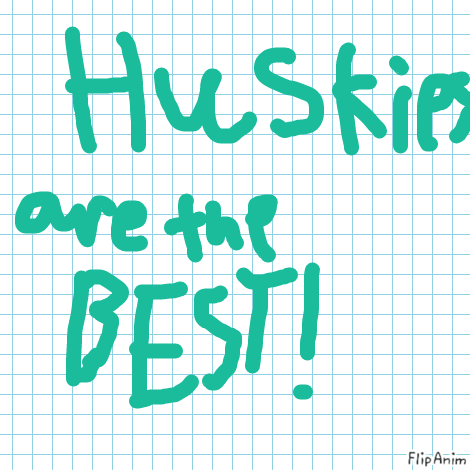 Huskies
are the
BEST!
FlipAnim